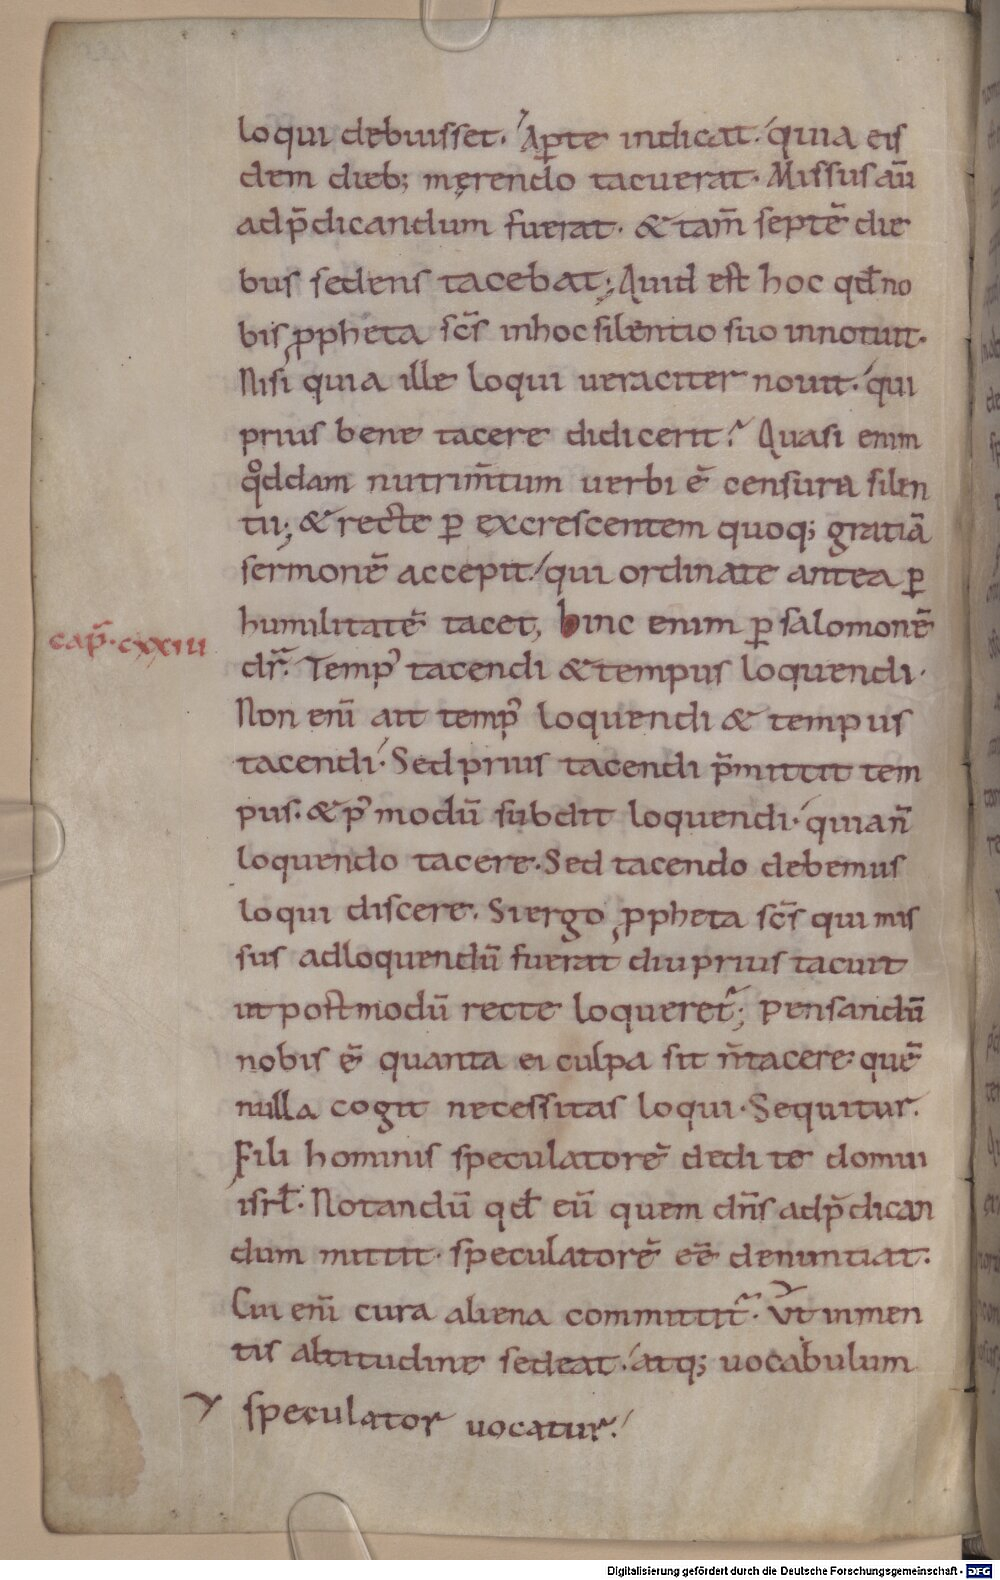 loqui debuisset. Aꝑte indicat. quia eis
dem dieb; męrendo tacuerat. Missus aū
adp̄dicandum fuerat. & tam̄ septē die
bus sedens tacebat; Quid est hoc qđ no
bis ꝓpheta sc̄s inhoc silentio suo innotuit.
Nisi quia ille loqui ueraciter nouit. qui
prius bene tacere didicerit? Quasi enim
qͦddam nutrim̄tum uerbi ē censura silen
tii; & recte ꝑ excrescentem quoq; gratiā
sermonē accepit. qui ordinate antea ꝑ
humilitatē tacet, hinc enim ꝑ salomonē
capͬ. cxxiii
dr̄. Tempꝰ tacendi & tempus loquendi.
Non eni̅ ait tempꝰ loquendi & tempus
tacendi. Sed prius tacendi p̄mittit tem
pus. & pꝰ modū subdit loquendi. quia n̄
loquendo tacere. Sed tacendo debemus
loqui discere. Si ergo ꝓpheta sc̄s qui mis
sus adloquendū fuerat diu prius tacuit
ut postmodū recte loqueret᷑; pensandū
nobis ē quanta ei culpa sit n̄ tacere. quē
nulla cogit necessitas loqui. Sequitur.
Fili hominis speculatorē dedi te domui
isrł. Notandū qđ eū quem dn̄s adp̄dican
dum mittit. speculatorē eē denuntiat.
Cui eni̅ cura aliena committit᷑. Vt in men
tis altitudine sedeat. atq; uocabulum
speculator uocatur.